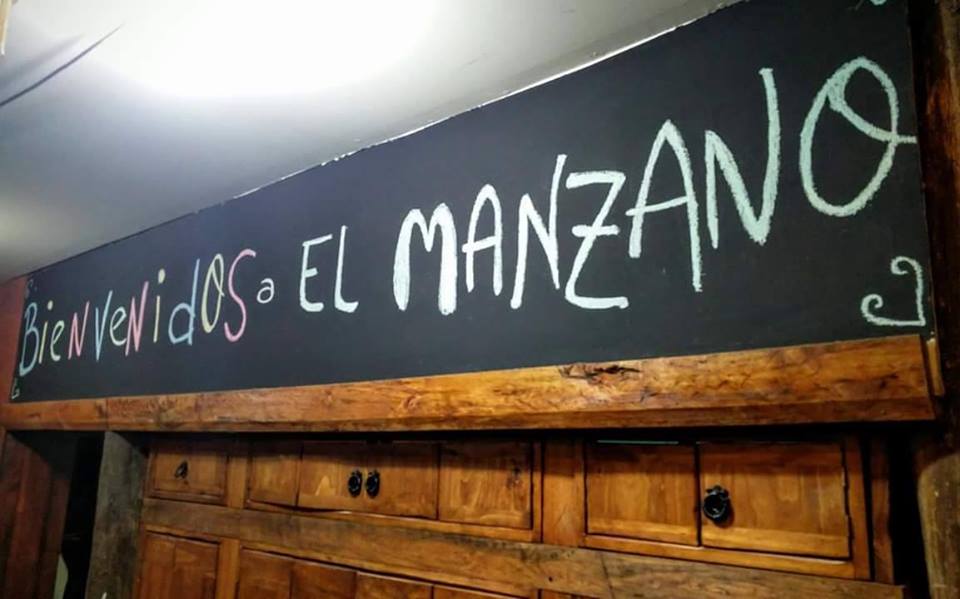 BieNVeNidOS a EL MANZANO